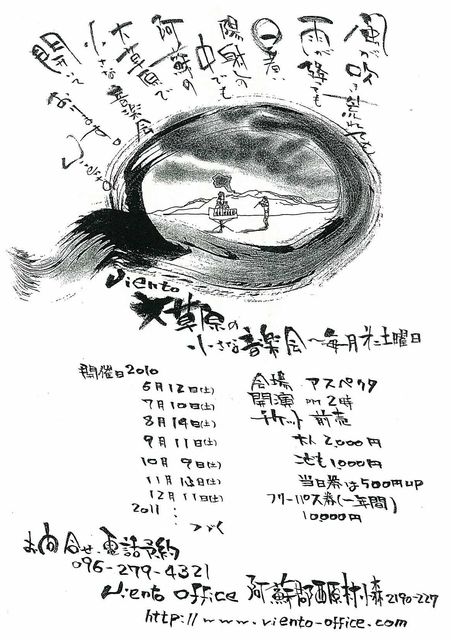 風が吹き荒れても
雨が降ても
陽射の
中でも
阿蘇の
大草原で
小さな音楽会
開いています。
Viento
Viento
大草原の
小さな音楽会 〜毎月第二土曜日
開催日2010
6月12日(土)
7月10日(土)
8月14日(土)
9月11日(土)
10月9日(土)
11月13日(土)
12月11日(土)
2011 :
つづく
会場 アスペクタ
開演 PM 2時
チケット 前売
大人 2,000円
こども 1,000円
当日券は500円UP
フリーパス券(一年間)
10,000円
お問合せ、電話予約
096-279-4321
Viento Office 阿蘇郡西原村小森2190-227
http://www.viento-office.com